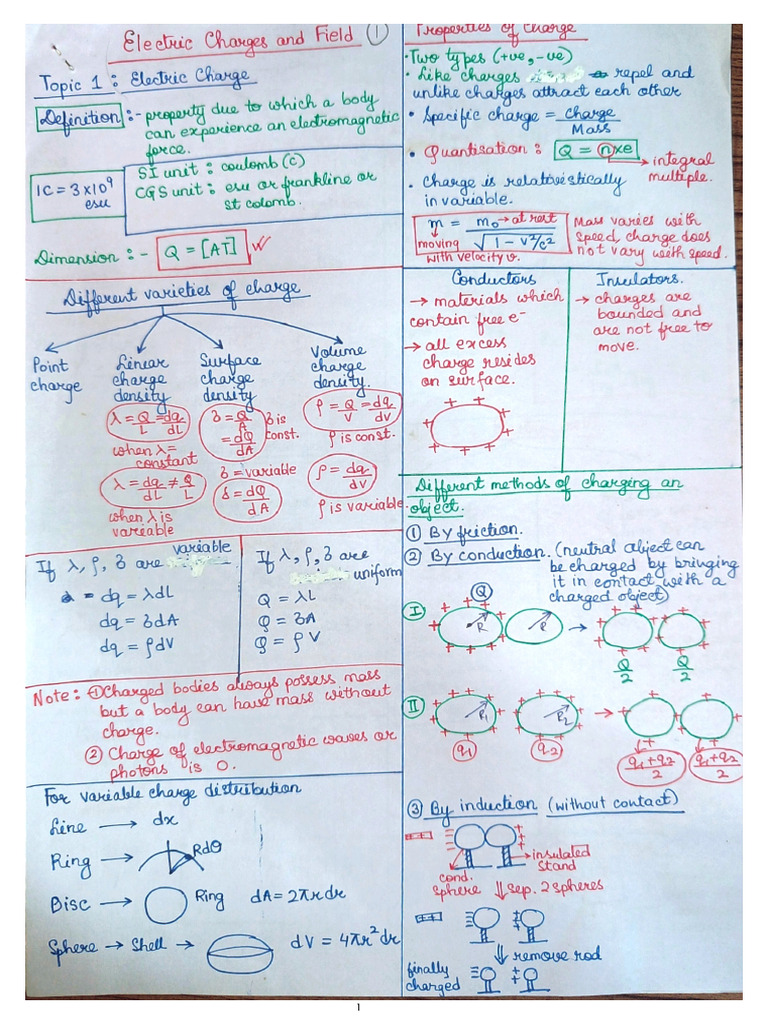 Electric Charges and Field ①
Topic 1 : Electric Charge
Definition :- property due to which a body
can experience an electromagnetic
force.
1C = 3×10⁹
esu
SI unit : coulomb (c)
CGS unit : esu or frankline or
st colomb.
Dimension :- Q = [AT]
Different varieties of charge
Point
charge
Linear
charge
density
λ = Q/L = dq/dL
when λ =
constant
λ = dq/dL ≠ Q/L
when λ is
variable
Surface
charge
density
σ = Q/A
= dQ/dA
σ is
const.
σ = variable
σ = dQ/dA
Volume
charge
density.
ρ = Q/V = dq/dV
ρ is const.
ρ = dq/dV
ρ is variable.
If λ, ρ, σ are variable
dq = λdL
dq = σdA
dq = ρdV
If λ, ρ, σ are
uniform
Q = λL
Q = σA
Q = ρV
Note : ① Charged bodies always possess mass
but a body can have mass without
charge.
② Charge of electromagnetic waves or
photons is 0.
For variable charge distribution
Line → dx
Ring → Rdθ
Disc → Ring dA = 2πrdr
Sphere → Shell → dV = 4πr²dr
Properties of Charge
• Two types (+ve, -ve)
• Like charges repel and
unlike charges attract each other
• Specific charge = charge/Mass
• Quantisation : Q = n×e → integral
multiple.
• Charge is relativistically
in variable.
m = m₀ → at rest / √1 - v²/c²
moving
with velocity v.
Mass varies with
speed, charge does
not vary with speed.
Conductors
→ materials which
contain free e-
→ all excess
charge resides
on surface.
Insulators.
→ charges are
bounded and
are not free to
move.
Different methods of charging an
object.
① By friction.
② By conduction. (neutral object can
be charged by bringing
it in contact with a
charged object)
I Q R R → Q/2 Q/2
II R₁ R₂ →
q₁ q₂ q₁+q₂/2 q₁+q₂/2
③ By induction (without contact)
insulated
stand
cond.
sphere
sep. 2 spheres
remove rod
finally
charged
1